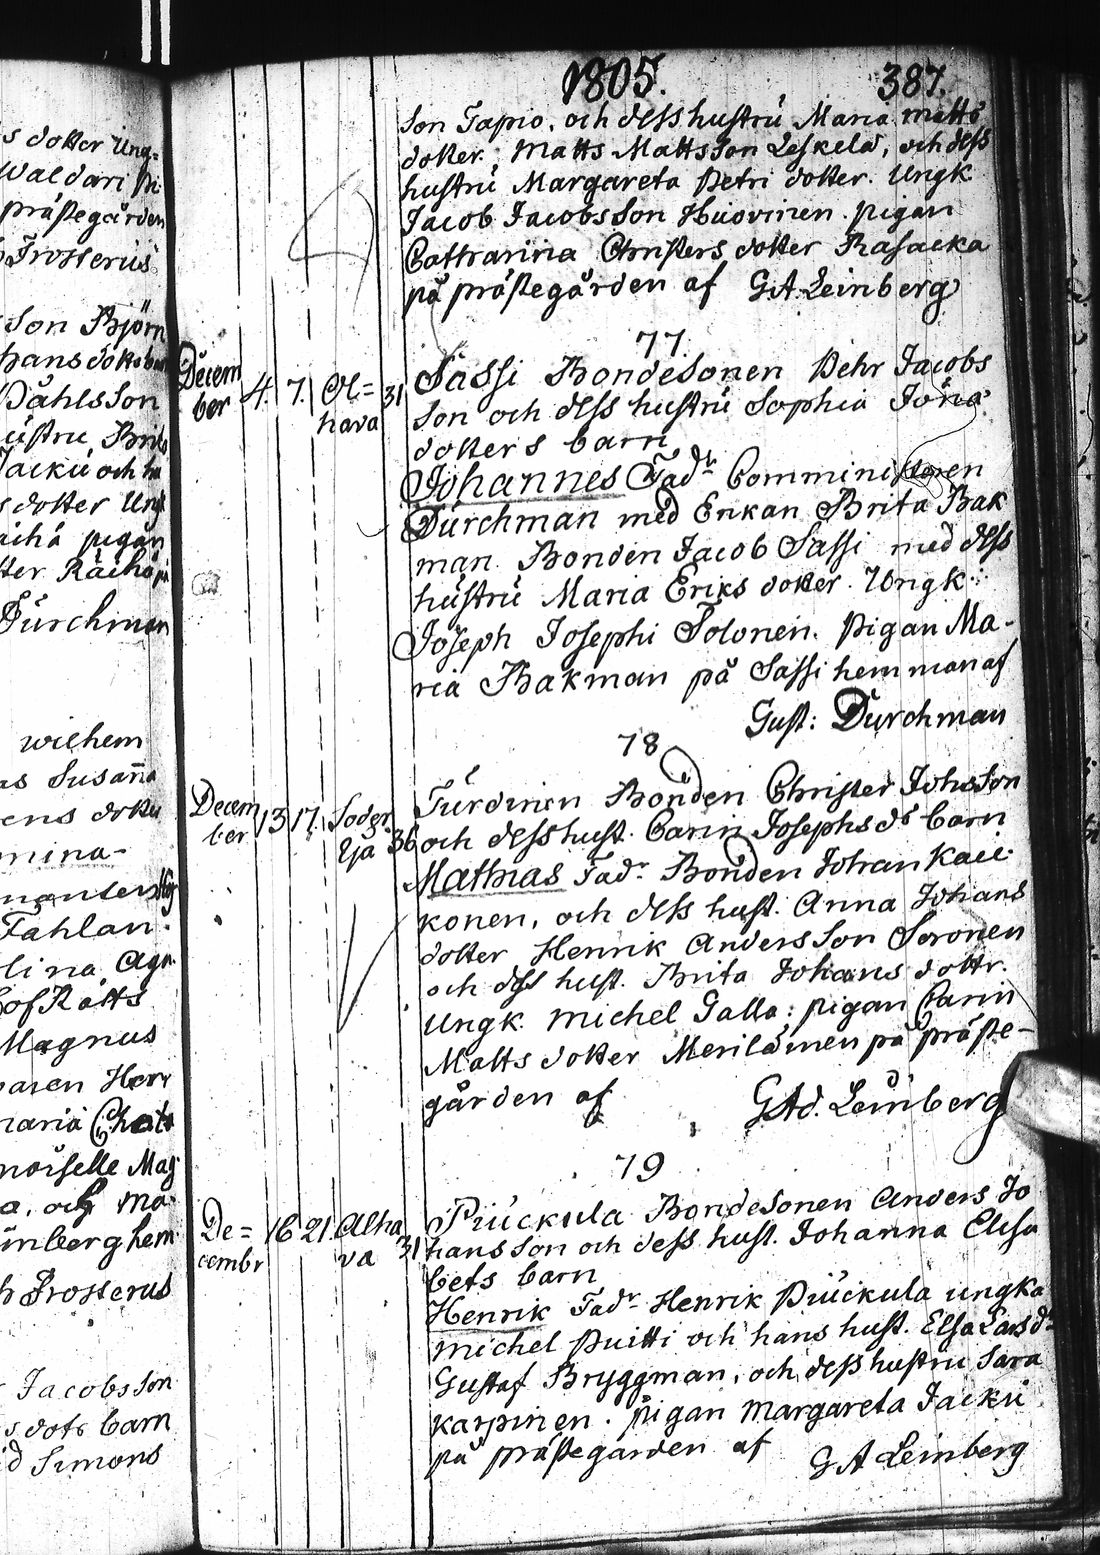 s dotter Ung=
Waldari Pi
prästegården
Frosterus
son Björn
hans dotters barn
Påhlsson
hustru Brita
Jacku och ha
s dotter Ungk
aihä pigan
tter Räihä på
Durchman
wilhem
as Susanna
ens dotter
mina-
Fahlan.
lina Aga
Hof Rätts
Magnus
aren Herr
maria Charlo
moiselle Mag
a, och Ma
inberg hem
h Frosterus
Jacobsson
s dotr barn
d Simons
1805. 387.
son Tapio, och dess hustru Maria matts
dotter. Matts Mattsson Leskelä, och dess
hustru Margareta Petri dotter. Ungk
Jacob Jacobsson Huovinen. pigan
Catharina Christers dotter Rasacka
på prästegården af G A Leinberg
77.
Decem
ber 4. 7. Ol=
hava 31 Sassi Bondesonen Pehr Jacobs
son och dess hustru Sophia Jöns
dotters barn
Johannes Fadr Comministeren
Durchman med Enkan Brita Bak
man Bonden Jacob Sassi med dess
hustru Maria Eriks dotter. Ungk.
Joseph Josephi Tolonen. pigan Ma-
ria Bakman på Sassi hemman af
Gust: Durchman
78
Decem
ber 13 17. Soder
Yjä 36 Turdinen Bonden Christer Johsson
och dess hust. Carin Josephs dr barn
Mathias Fadr Bonden Johan Kaii
konen, och dess hust. Anna Johans
dotter Henrik Andersson Soronen
och dess hust. Brita Johans dottr.
Ungk. Michel Galla: pigan Carin
Matts dotter Meriläinen på präste-
gården af GAd. Leinberg
79
De=
cembr 16 21. Olha
va 31 Piuckula Bondesonen Anders Jo
hansson och dess hust. Johanna Elisa
bets barn
Henrik Fadr Henrik Piuckula ungka
michel Puitti och hans hust. Elsa Lars dr
Gustaf Bryggman, och dess hustru Sara
karpinen. pigan Margareta Jacku
på prästegården af G A Leinberg